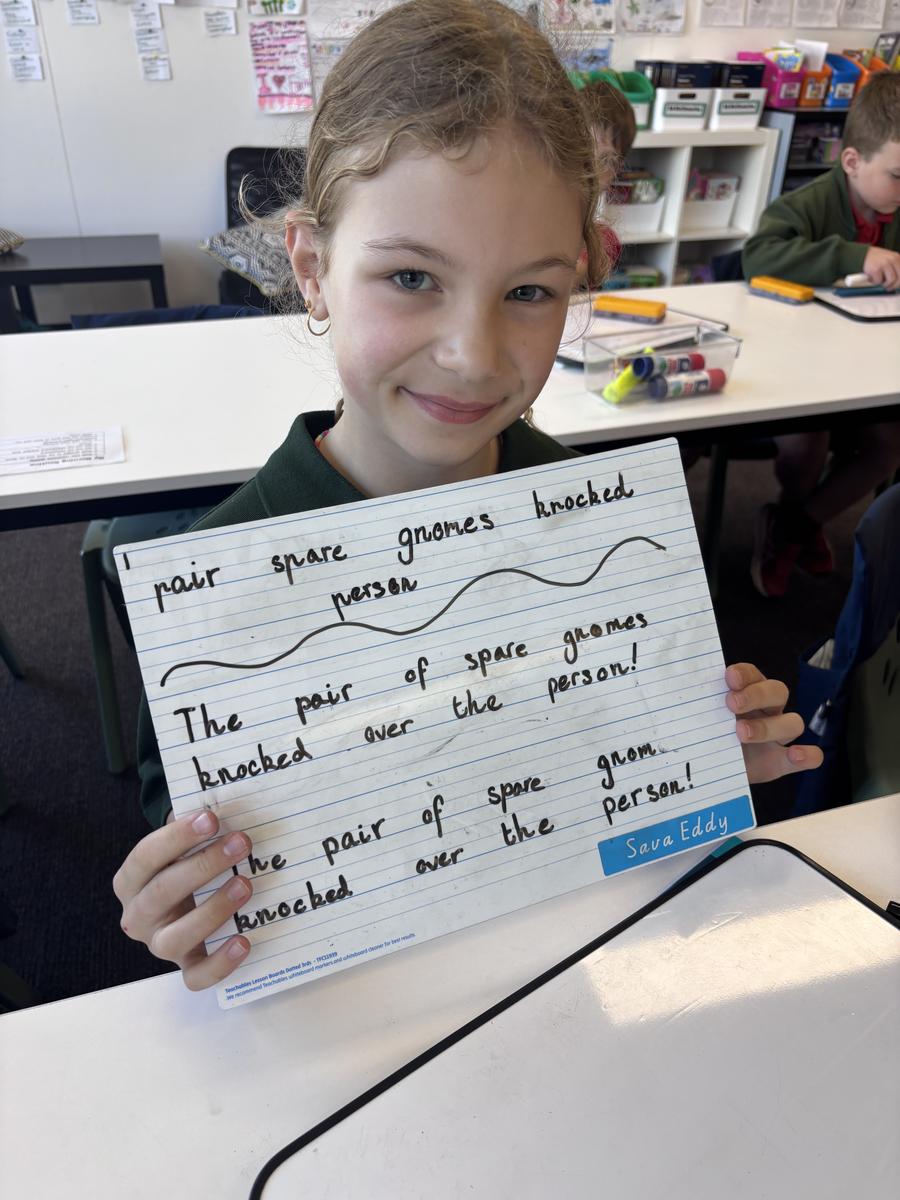 pair spare gnomes knocked
person
The pair of spare gnomes
knocked over the person!
The pair of spare gnom
knocked over the person!
Sava Eddy
Teachables Lesson Boards Dotted 3rds - TFC11939
We recommend Teachables whiteboard markers and whiteboard cleaner for best results.